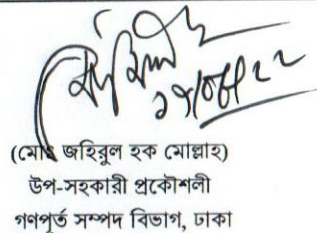 (মোঃ জহিরুল হক মোল্লাহ)
উপ-সহকারী প্রকৌশলী
গণপূর্ত সম্পদ বিভাগ, ঢাকা